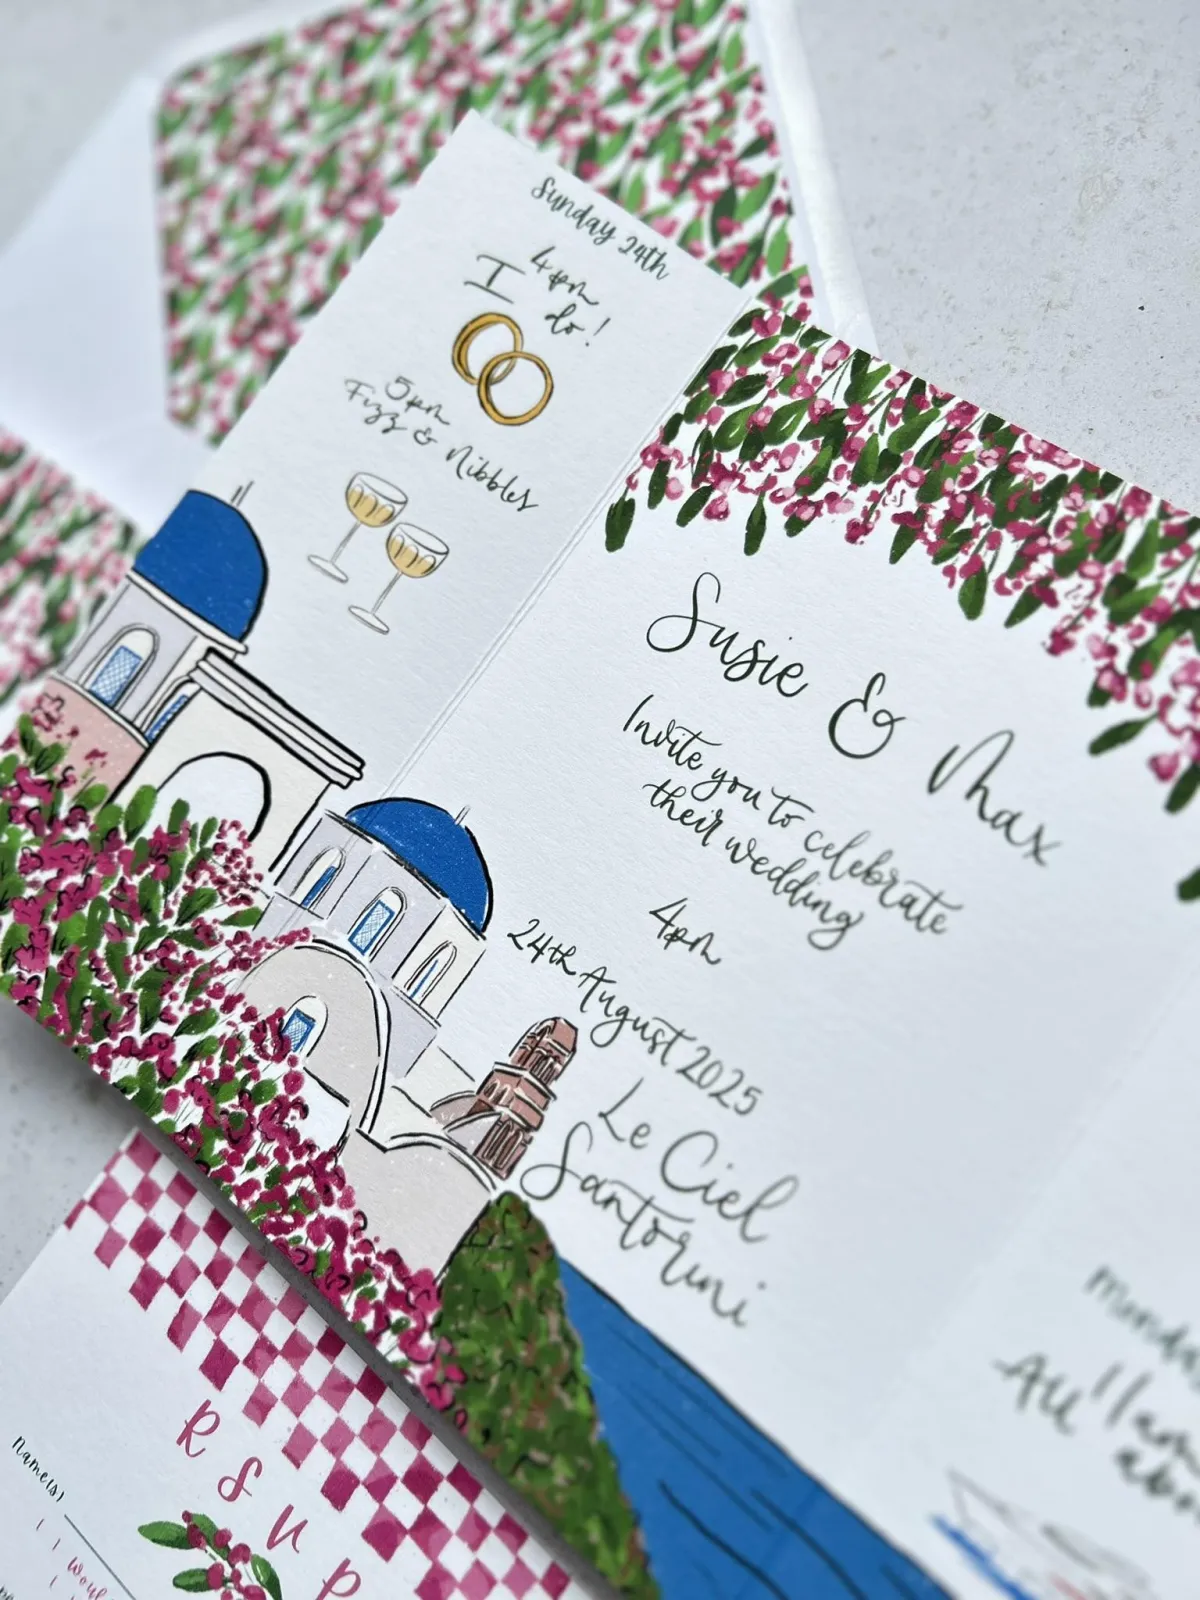 Sunday 24th
4pm
I do!
5pm
Fizz & Nibbles
Susie & Max
Invite you to celebrate
their wedding
4pm
24th August 2025
Le Ciel
Santorini
11am
All
RSVP
Name(s)